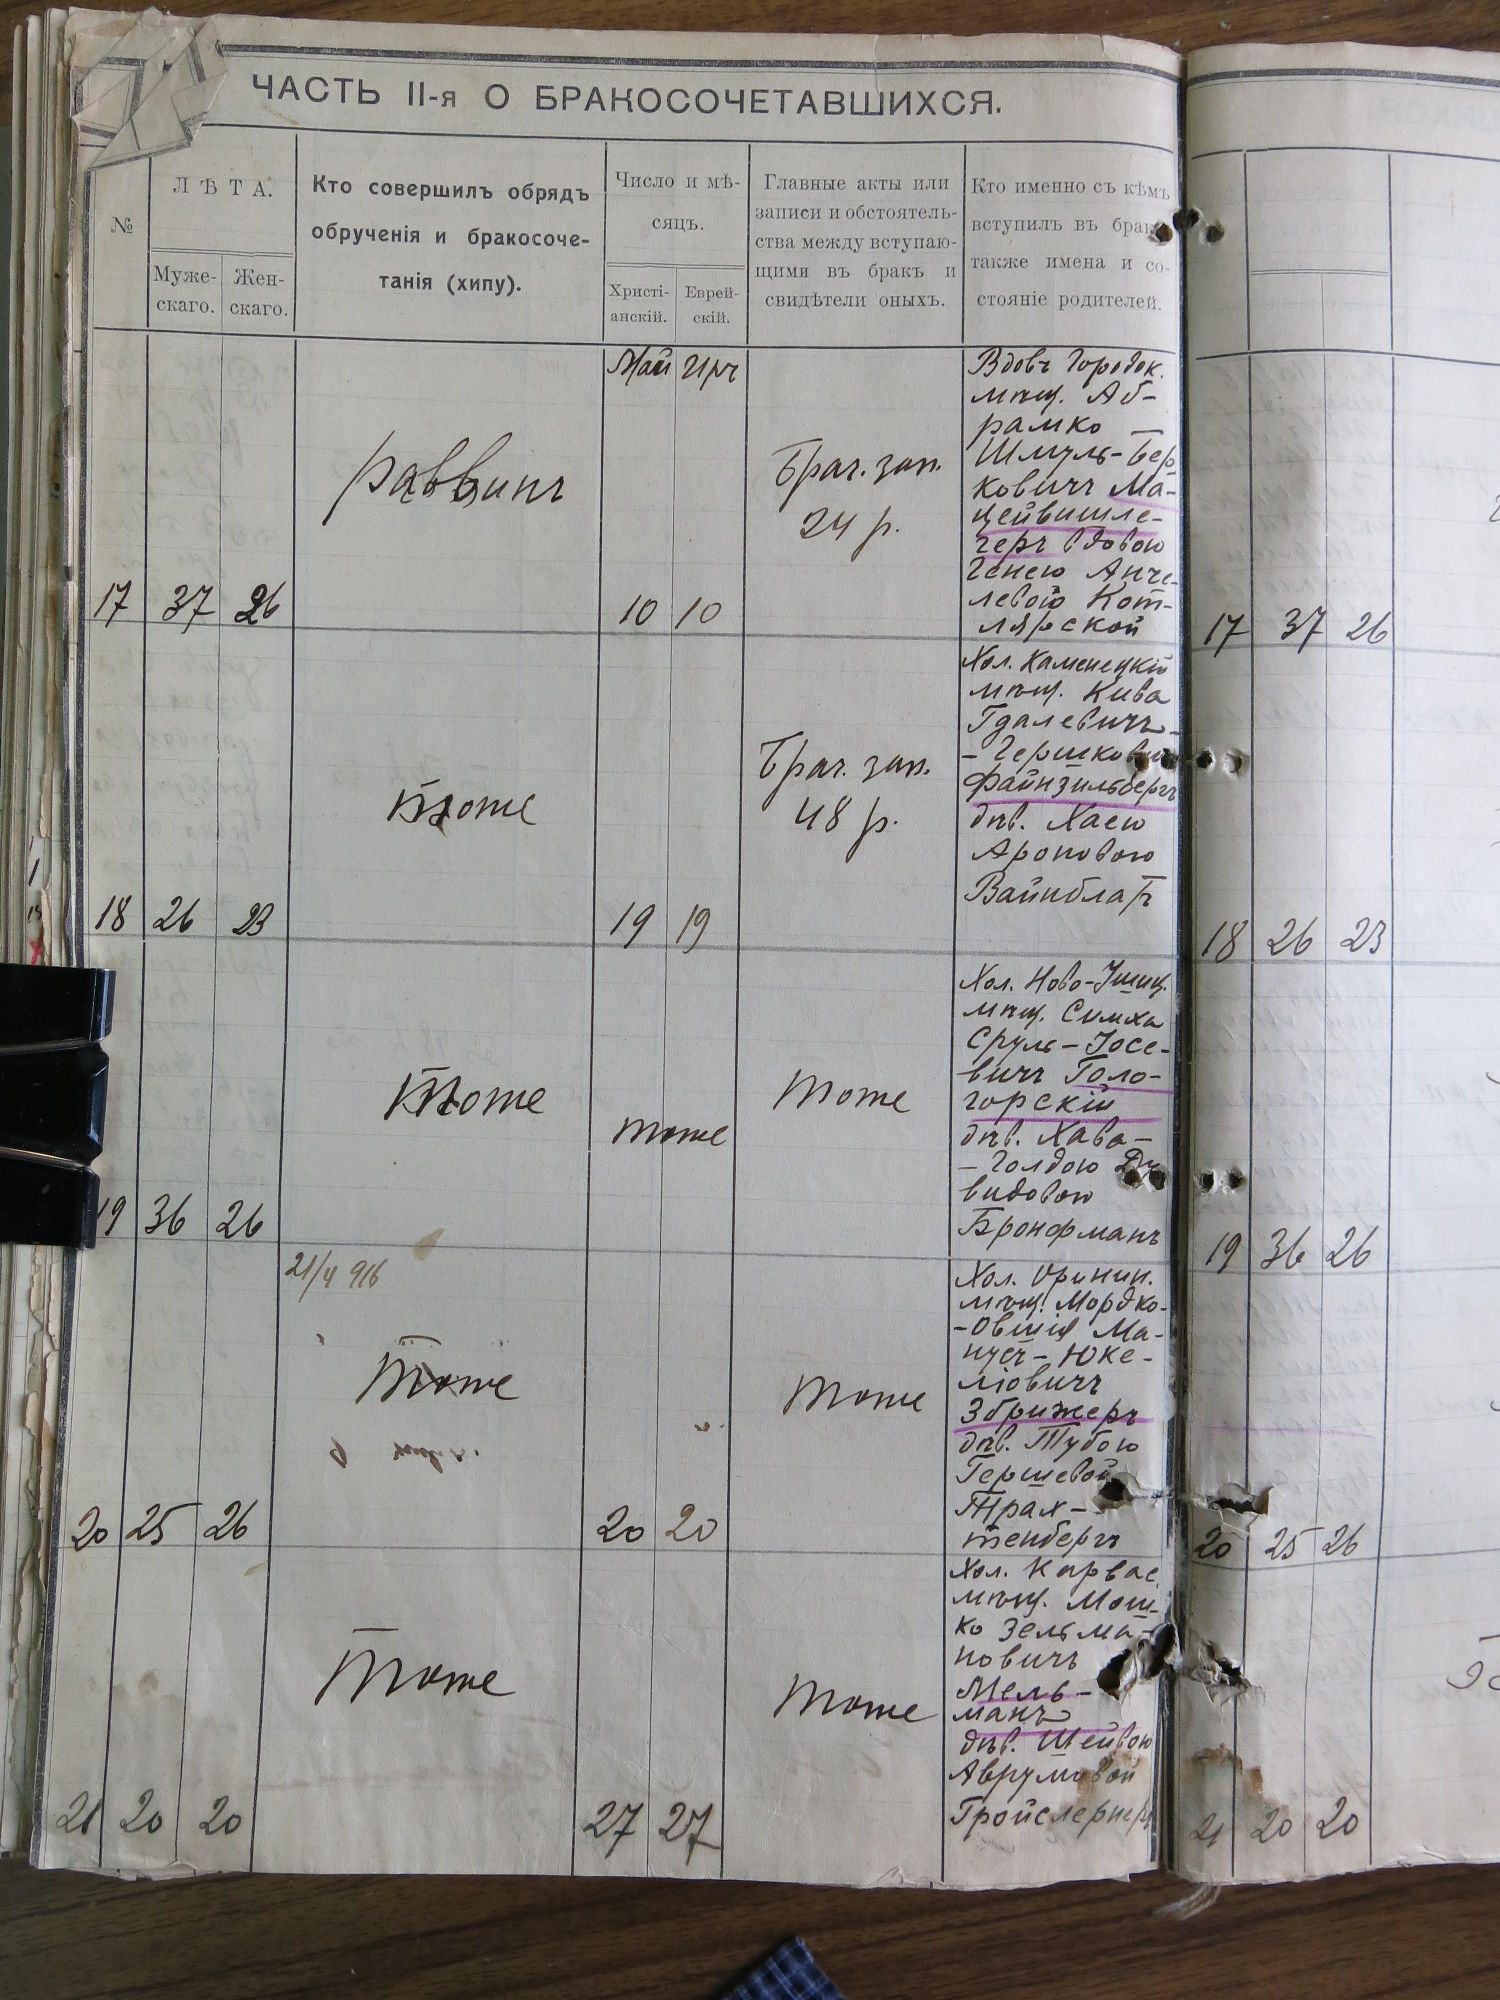 ЧАСТЬ II-я О БРАКОСОЧЕТАВШИХСЯ.
№
ЛѢТА.
Муже-
скаго.
Жен-
скаго.
Кто совершилъ обрядъ
обрученія и бракосоче-
танія (хипу).
Число и мѣ-
сяцъ.
Христі-
анскій.
Еврей-
скій.
Главные акты или
записи и обстоятель-
ства между вступаю-
щими въ бракъ и
свидѣтели оныхъ.
Кто именно съ кѣмъ
вступилъ въ бракъ
также имена и со-
стояніе родителей.
17 37 26
раввинъ
Май Иръ
10 10
Брач. зап.
24 р.
Вдовъ Городок.
мѣщ. Аб-
рамко
Шмуль-Бер
ковичъ Ма-
цейвишле-
геръ вдовою
Генею Анче-
левою Кот-
лярской
17 37 26
18 26 23
тоже
19 19
Брач. зап.
48 р.
Хол. Каменецкій
мѣщ. Кива
Гдалевичъ-
-Гершкови
Файнзильбергъ
дѣв. Хаею
Ароновою
Вайнблатъ
18 26 23
19 36 26
тоже
тоже
тоже
Хол. Ново-Ушиц.
мѣщ. Симха
Сруль-Іосе-
вичъ Голо-
горскій
дѣв. Хава-
-Голдою Да
видовою
Бронфманъ
19 36 26
21/4 916
20 25 26
тоже
20 20
тоже
Хол. Оринин.
мѣщ. Мордко-
-Овшія Ма-
нусъ-Юке-
ліовичъ
Збрижеръ
дѣв. Тубою
Гершевой
Трах-
тенбергъ
20 25 26
21 20 20
тоже
27 27
тоже
Хол. Карвас.
мѣщ. Мош-
ко Зельма-
новичъ
Мель-
манъ
дѣв. Шейвою
Аврумовой
Гройслернеръ
21 20 20